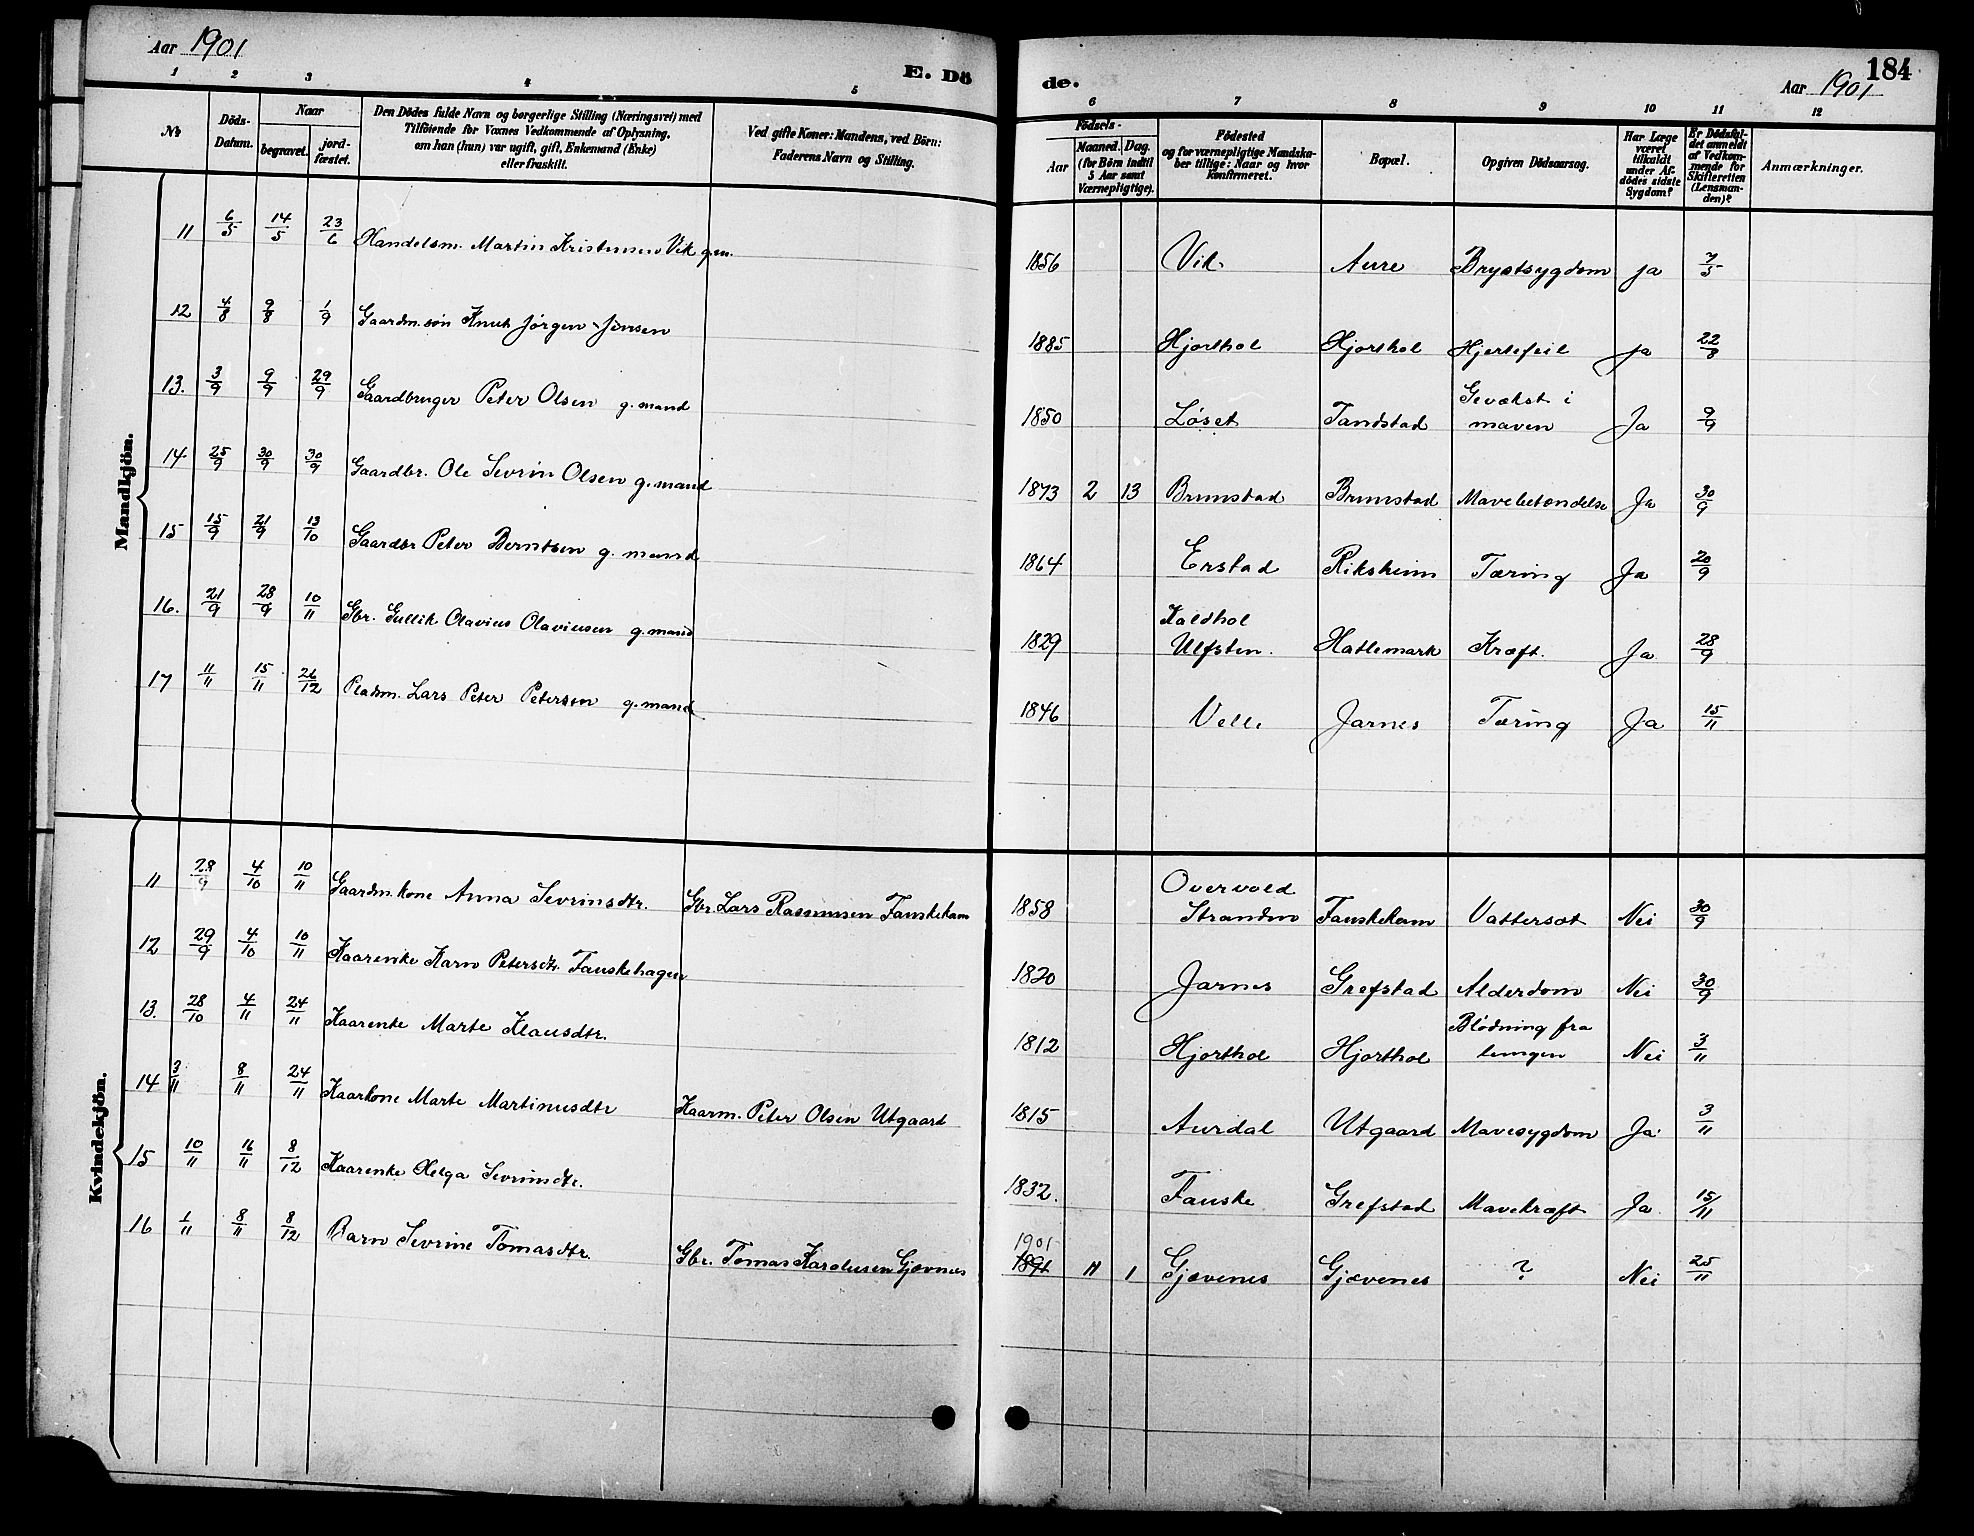 Aar 1901
E. Dö
de.
184
Aar 1901
1 2 3 4 5 6 7 8 9 10 11 12
No
Döds-Datum.
Naar
begravet.
jord-fæstet.
Den Dödes fulde Navn og borgerlige Stilling (Næringsvei) med
Tilföiende for Voxnes Vedkommende af Oplysning,
om han (hun) var ugift, gift, Enkemand (Enke)
eller fraskilt.
Ved gifte Koner: Mandens, ved Börn:
Faderens Navn og Stilling.
Födsels-
Aar
Maaned. Dag.
(for Börn indtil
5 Aar samt
Værnepligtige).
Födested
og for værnepligtige Mandska-
ber tillige: Naar og hvor
konfirmeret.
Bopæl.
Opgiven Dödsaarsag.
Har Læge
været
tilkaldt
under Af-
dödes sidste
Sygdom?
Er Dödsfal-
det anmeldt
af Vedkom-
mende for
Skifteretten
(Lensman-
den)?
Anmærkninger.
Mandkjön.
11 6/5 14/5 23/6 Handelsm. Martin Kristensen Vik g.m. 1856 Vik Aure Brystsygdom ja 7/5
12 4/8 9/8 1/9 Gaardm.søn Knut Jørgen Jensen 1885 Hjorthol Hjorthol Hjertefeil ja 22/8
13. 3/9 9/9 29/9 Gaardbruger Peter Olsen g. mand 1850 Løset Tandstad Gevækst i maven Ja 9/9
14 25/9 30/9 30/9 Gaardbr. Ole Sevrin Olsen g. mand 1873 2 13 Brunstad Brunstad Mavebetændelse Ja 30/9
15 15/9 21/9 13/10 Gaardbr Peter Berntsen g. mand 1864 Erstad Riksheim Tæring Ja 20/9
16. 21/9 28/9 10/11 Gbr. Gullik Olavius Olaviusen g. mand 1829 Kaldhol Ulfsten. Hatlemark Kræft. Ja 28/9
17 11/11 15/11 26/12 Pladm. Lars Peter Petersen g. mand 1846 Velle Jarnes Tæring Ja 15/11
Kvindekjön.
11 28/9 4/10 10/11 Gaardm.kone Anna Sevrinsdtr. Gbr. Lars Rasmusen Fauskekam 1858 Overvold Strandmo Fauskekam Vattersot Nei 30/9
12 29/9 4/10 10/11 Kaarenke Karn Petersdtr. Fauskehagen 1820 Jarnes Grefstad Alderdom Nei 30/9
13. 28/10 4/11 24/11 Kaarenke Marte Klausdtr. 1812 Hjorthol Hjorthol Blødning fra lungen Nei 3/11
14 3/11 8/11 24/11 Kaarkone Marte Martinusdtr Kaarm. Peter Olsen Utgaard 1815 Aurdal Utgaard Mavesygdom Ja 3/11
15 10/11 16/11 8/12 Kaarenke Helga Sevrinsdtr. 1832. Fauske Grefstad Mavekræft Ja 15/11
16 1/11 8/11 8/12 Barn Sevrine Tomasdtr. Gbr. Tomas Karolusen Gjævenes 1901 1891 11 1 Gjævenes Gjævenes ? Nei 25/11